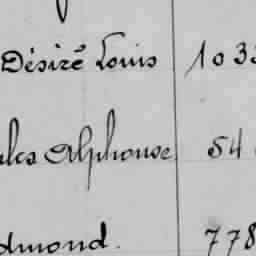 Désiré Louis 103
ules Alphonse 54
dmond. 778